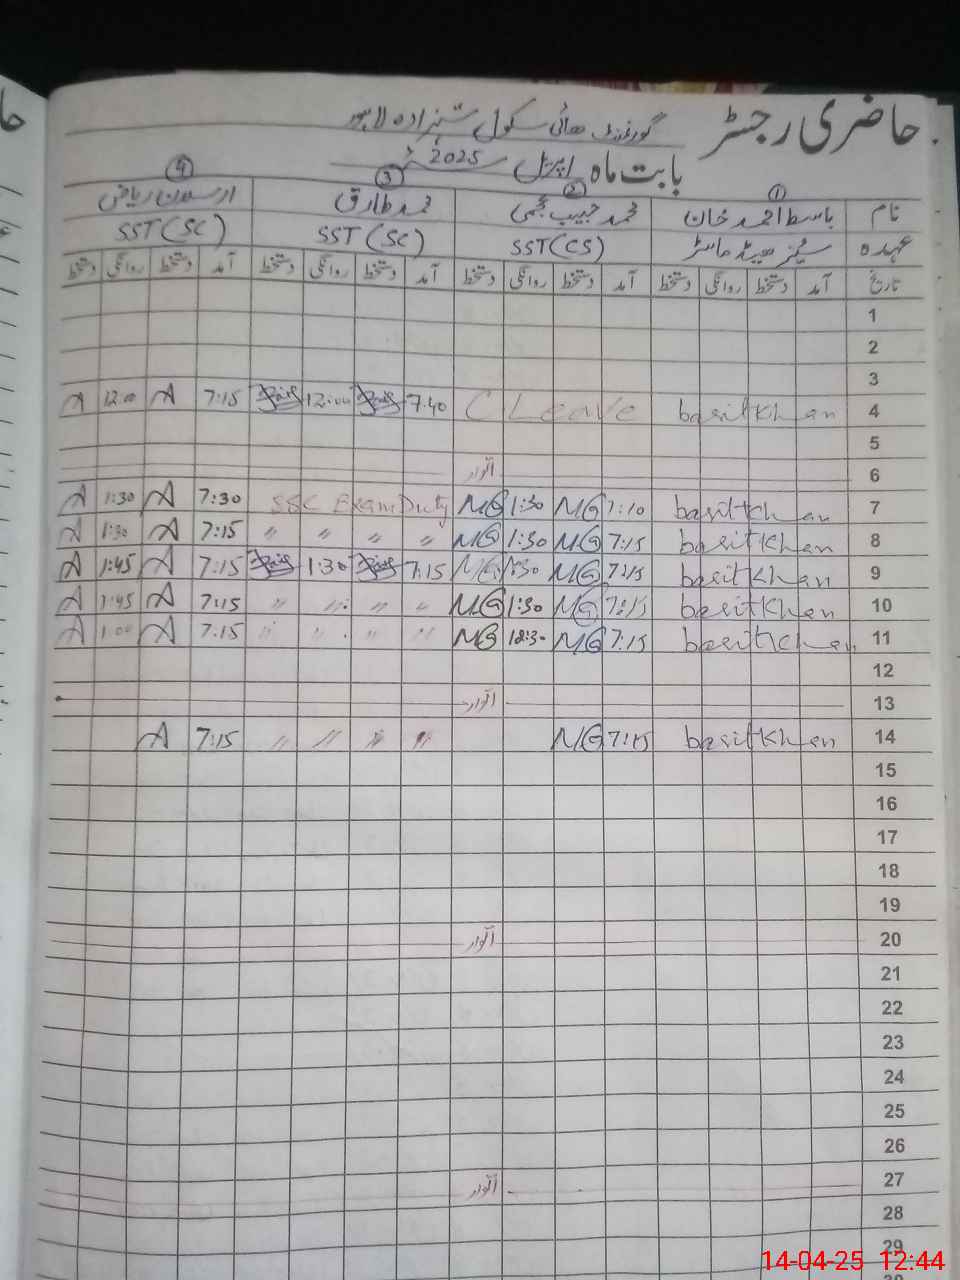 حاضری رجسٹر گورنمنٹ ھائی سکول شہزادہ لاہور
بابت ماہ اپریل 2025ء
نام ① باسط احمد خان ② محمد حبیب ③ محمد طارق ④ ارسلان ریاض
عہدہ سینئر ھیڈ ماسٹر SST (CS) SST (SC) SST (SC)
تاریخ آمد دستخط روانگی دستخط آمد دستخط روانگی دستخط آمد دستخط روانگی دستخط آمد دستخط روانگی دستخط
1
2
3
4 basitkhan C Leave 7:40 12:00 7:15 A 12:00 A
5
6 اتوار
7 basitkhan 7:10 MG 1:30 MG SSC Exam Duty 7:30 A 1:30 A
8 basitkhan 7:15 MG 1:30 MG " " " " 7:15 A 1:30 A
9 basitkhan 7:15 MG 1:30 MG 7:15 1:30 7:15 A 1:45 A
10 basitkhan 7:15 MG 1:30 MG " " " " 7:15 A 1:45 A
11 basitkhan 7:15 MG 12:30 MG " " " " 7:15 A 1:00 A
12
13 اتوار
14 basitkhan 7:15 MG " " " " 7:15 A
15
16
17
18
19
20 اتوار
21
22
23
24
25
26
27 اتوار
28
29
14-04-25 12:44